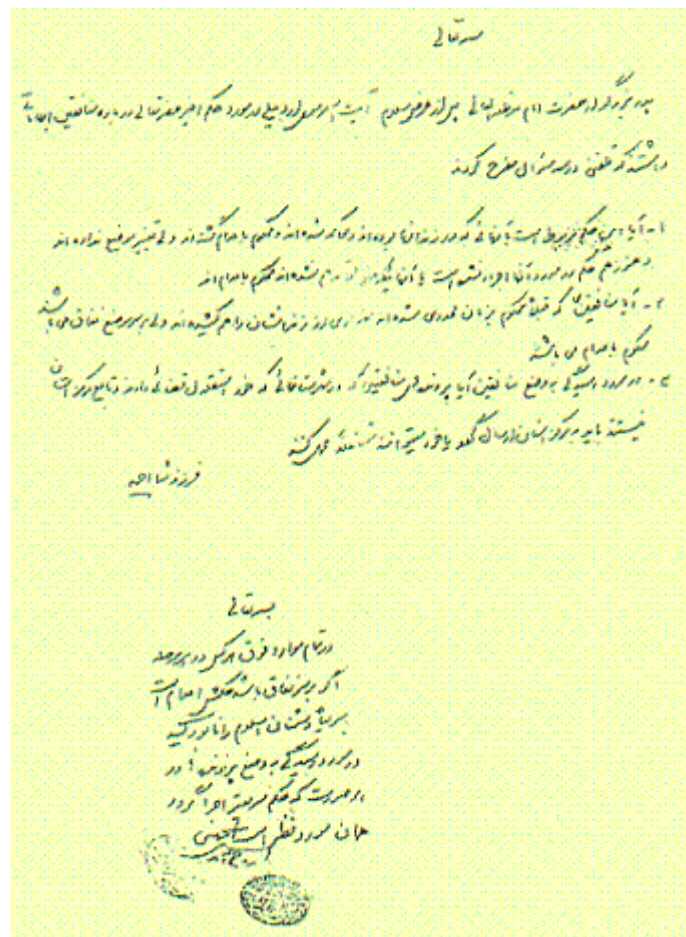 بسمه تعالی
پدر بزرگوار حضرت امام مدظله العالی پس از عرض سلام آیت الله موسوی اردبیلی در مورد حکم اخیر حضرتعالی درباره منافقین ابهاماتی
داشتند که تلفنی در سه سؤال مطرح کردند
۱- آیا این حکم مربوط به آنهائی است که در زندانها بوده‌اند و محاکمه شده‌اند و محکوم باعدام گشته‌اند ولی تغییر موضع نداده‌اند
و هنوز هم حکم در مورد آنها اجرا نشده است یا آنهائیکه محاکمه هم نشده‌اند محکوم باعدام‌اند
۲- آیا منافقین که قبلاً محکوم بزندان محدودی شده‌اند و مقداری از زندانشان را هم کشیده‌اند ولی بر سر موضع نفاق می باشند
محکوم باعدام می باشند
۳- در مورد رسیدگی به وضع منافقین آیا پرونده‌های منافقینی که در شهرستانهائی که خود استقلال قضائی دارند و تابع مرکز استان
نیستند باید به مرکز استان ارسال گردد یا خود میتوانند مستقلاً عمل کنند
فرزند شما احمد
بسمه تعالی
در تمام موارد فوق هر کس در هر مرحله
اگر بر سر نفاق باشد حکمش اعدام است
سریعاً دشمنان اسلام را نابود کنید
در مورد رسیدگی به وضع پرونده‌ها در
هر صورت که حکم سریعتر اجرا گردد
همان مورد نظر است